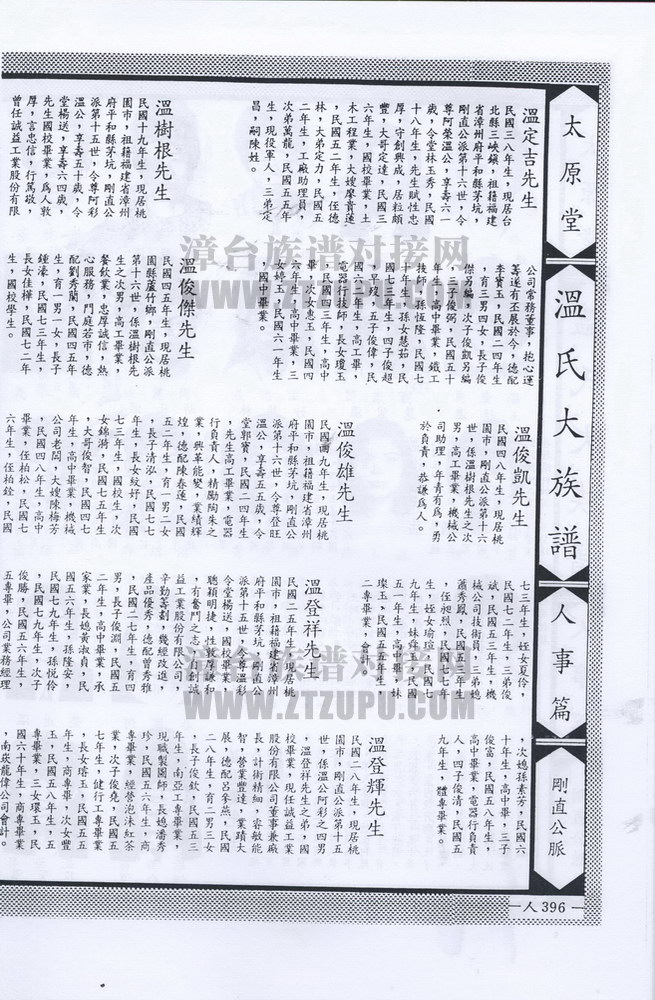 太原堂
溫氏大族譜
人事篇
剛直公脈
人396
溫定吉先生
民國三八年生，現居台
北縣三峽鎮，祖籍福建
省漳州府平和縣茅坑，
剛直公派第十六世，令
尊阿榮溫公，享壽六一
歲，令堂林玉秀，民國
十八年生，先生賦性忠
厚，守創興成，居粒頗
豐，大哥定達，民國三
六年生，國校畢業，土
木工程業，大嫂廖貴蓮
，民國五二年生，侄德
林，大弟定力，民國五
二年生，工廠助理員，
次弟萬龍，民國五五年
生，現役軍人，三弟定
昌，嗣陳姓。
溫樹根先生
民國十九年生，現居桃
園市，祖籍福建省漳州
府平和縣茅坑，剛直公
派第十五世，令尊阿彩
溫公，享壽五十歲，令
堂楊送，享壽六四歲，
先生國校畢業，為人敦
厚，言忠信，行篤敬，
曾任誠益工業股份有限
公司常務董事，抱心運
籌遂有丕展於今，德配
李寶玉，民國二四年生
，育三男四女，長子俊
傑另編，次子俊凱另編
，三子俊弼，民國五十
年生，高中畢業，鐵工
技師，孫恆隆，民國七
十年生，孫女慧茹，民
國七三年生，四子俊超
，早歿，五子俊偉，民
年生，高工畢業，
電器行技師，長女瓊玉
，民國四三年生，高中
畢，次女惠玉，民國四
六年生，高中畢業，三
女婷玉，民國六一年生
，國中畢業。
溫俊傑先生
民國四五年生，現居桃
園縣蘆竹鄉，剛直公派
第十六世，係溫樹根先
生之次男，高工畢業，
餐飲業，忠厚誠信，熱
心服務，門庭若市，德
配劉秀蘭，民國四五年
生，育一男一女，長子
鍾濠，民國七三年生，
長女佳樺，民國七二年
生，國校學生。
溫俊凱先生
民國四八年生，現居桃
園市，剛直公派第十六
世，係溫樹根先生之次
男，高工畢業，機械公
司助理，年青有為，勇
於負責，恭謙為人。
溫俊雄先生
民國四九年生，現居桃
園市，祖籍福建省漳州
府平和縣茅坑，剛直公
派第十六世，令尊登旺
溫公，享壽五五歲，令
堂郭寶，民國二四年生
，先生高工畢業，電器
行負責人，精勵陶朱之
業，興革能變，業績輝
煌，德配陳春蓮，民國
五二年生，育一男二女
，長子清泓，民國七七
年生，長女紋妤，民國
七三年生，國校生，次
女錦漪，民國七五年生
，大哥俊智，民國四三
年生，高中畢業，機械
公司老闆，大嫂陳梅芳
，民國四八年生，高中
畢業，侄柏松，民國七
六年生，侄柏銓，民國
七三年生，姪女夏伶，
民國七二年生，三弟俊
斌，民國五三年生，機
械公司技術員，三弟媳
蕭秀鳳，民國五三年生
，侄昶烈，民國七七年
生，姪女瑜瑄，民國七
九年生，妹舜玉，民國
五一年生，高中畢，妹
璨玉，民國五五年生，
二專畢業。
溫登祥先生
民國二五年生，現居桃
園市，祖籍福建省漳州
府平和縣茅坑，剛直公
派第十五世，令尊溫彩
令堂楊送，國校畢業，
聰穎明捷，性嚴厲謙和
，有奮鬥之志，首創誠
益工業股份有限公司，
辛勤籌劃，幾經改進，
產品優秀，德配曾秀雅
，民國二七年生，育四
男，長子俊淵，民國五
二年生，高中畢業，承
家業，長媳黃淑貞，民
國五六年生，孫隆安，
民國七七年生，孫悅伶
，民國七九年生，次子
俊勝，民國五六年生，
五專畢，公司業務經理
，次媳孫素芳，民國六
十年生，高中畢，三子
俊富，民國五八年生，
高中畢業，電器行負責
人，四子俊清，民國五
九年生，體專畢業。
溫登輝先生
民國二八年生，現居桃
園市，剛直公派第十五
世，係溫公阿彩之四男
，溫登祥先生之弟，國
校畢業，現任誠益工業
股份有限公司董事兼廠
長，計術精細，容敏能
智，營業豐達，業蹟大
展，德配呂麥燕，民國
二八年生，育二男三女
，長子俊欽，民國五三
年生，南亞工專畢業，
現職製圖師，長媳潘秀
珍，民國五六年生，商
專畢業，經營泡沫紅茶
業，次子俊堯，民國五
七年生，健行工專畢業
，長女瑢玉，民國五五
年生，商專畢業，次女豐
玉，民國五八年生，商
專畢業，三女環玉，民
國六十年生，商專畢業
，南崁龍偉公司會計。
漳台族谱对接网
WWW.ZTZUPU.COM
漳台族谱对接网
WWW.ZTZUPU.COM